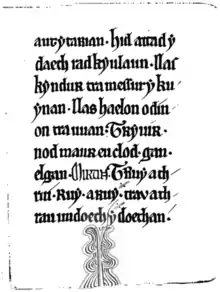 aut y tarian. hid attad ẏ
daeth rad kyulaun. llas
kyndur tra messur ẏ ku
ynan. llas haelon o din
on tra uuan. Tryuir.
nod maur eu clod. gan.
elgan. Truy ath
rui. Ruy. a ruy. trav ath
rau imdoeth ẏ doethan.